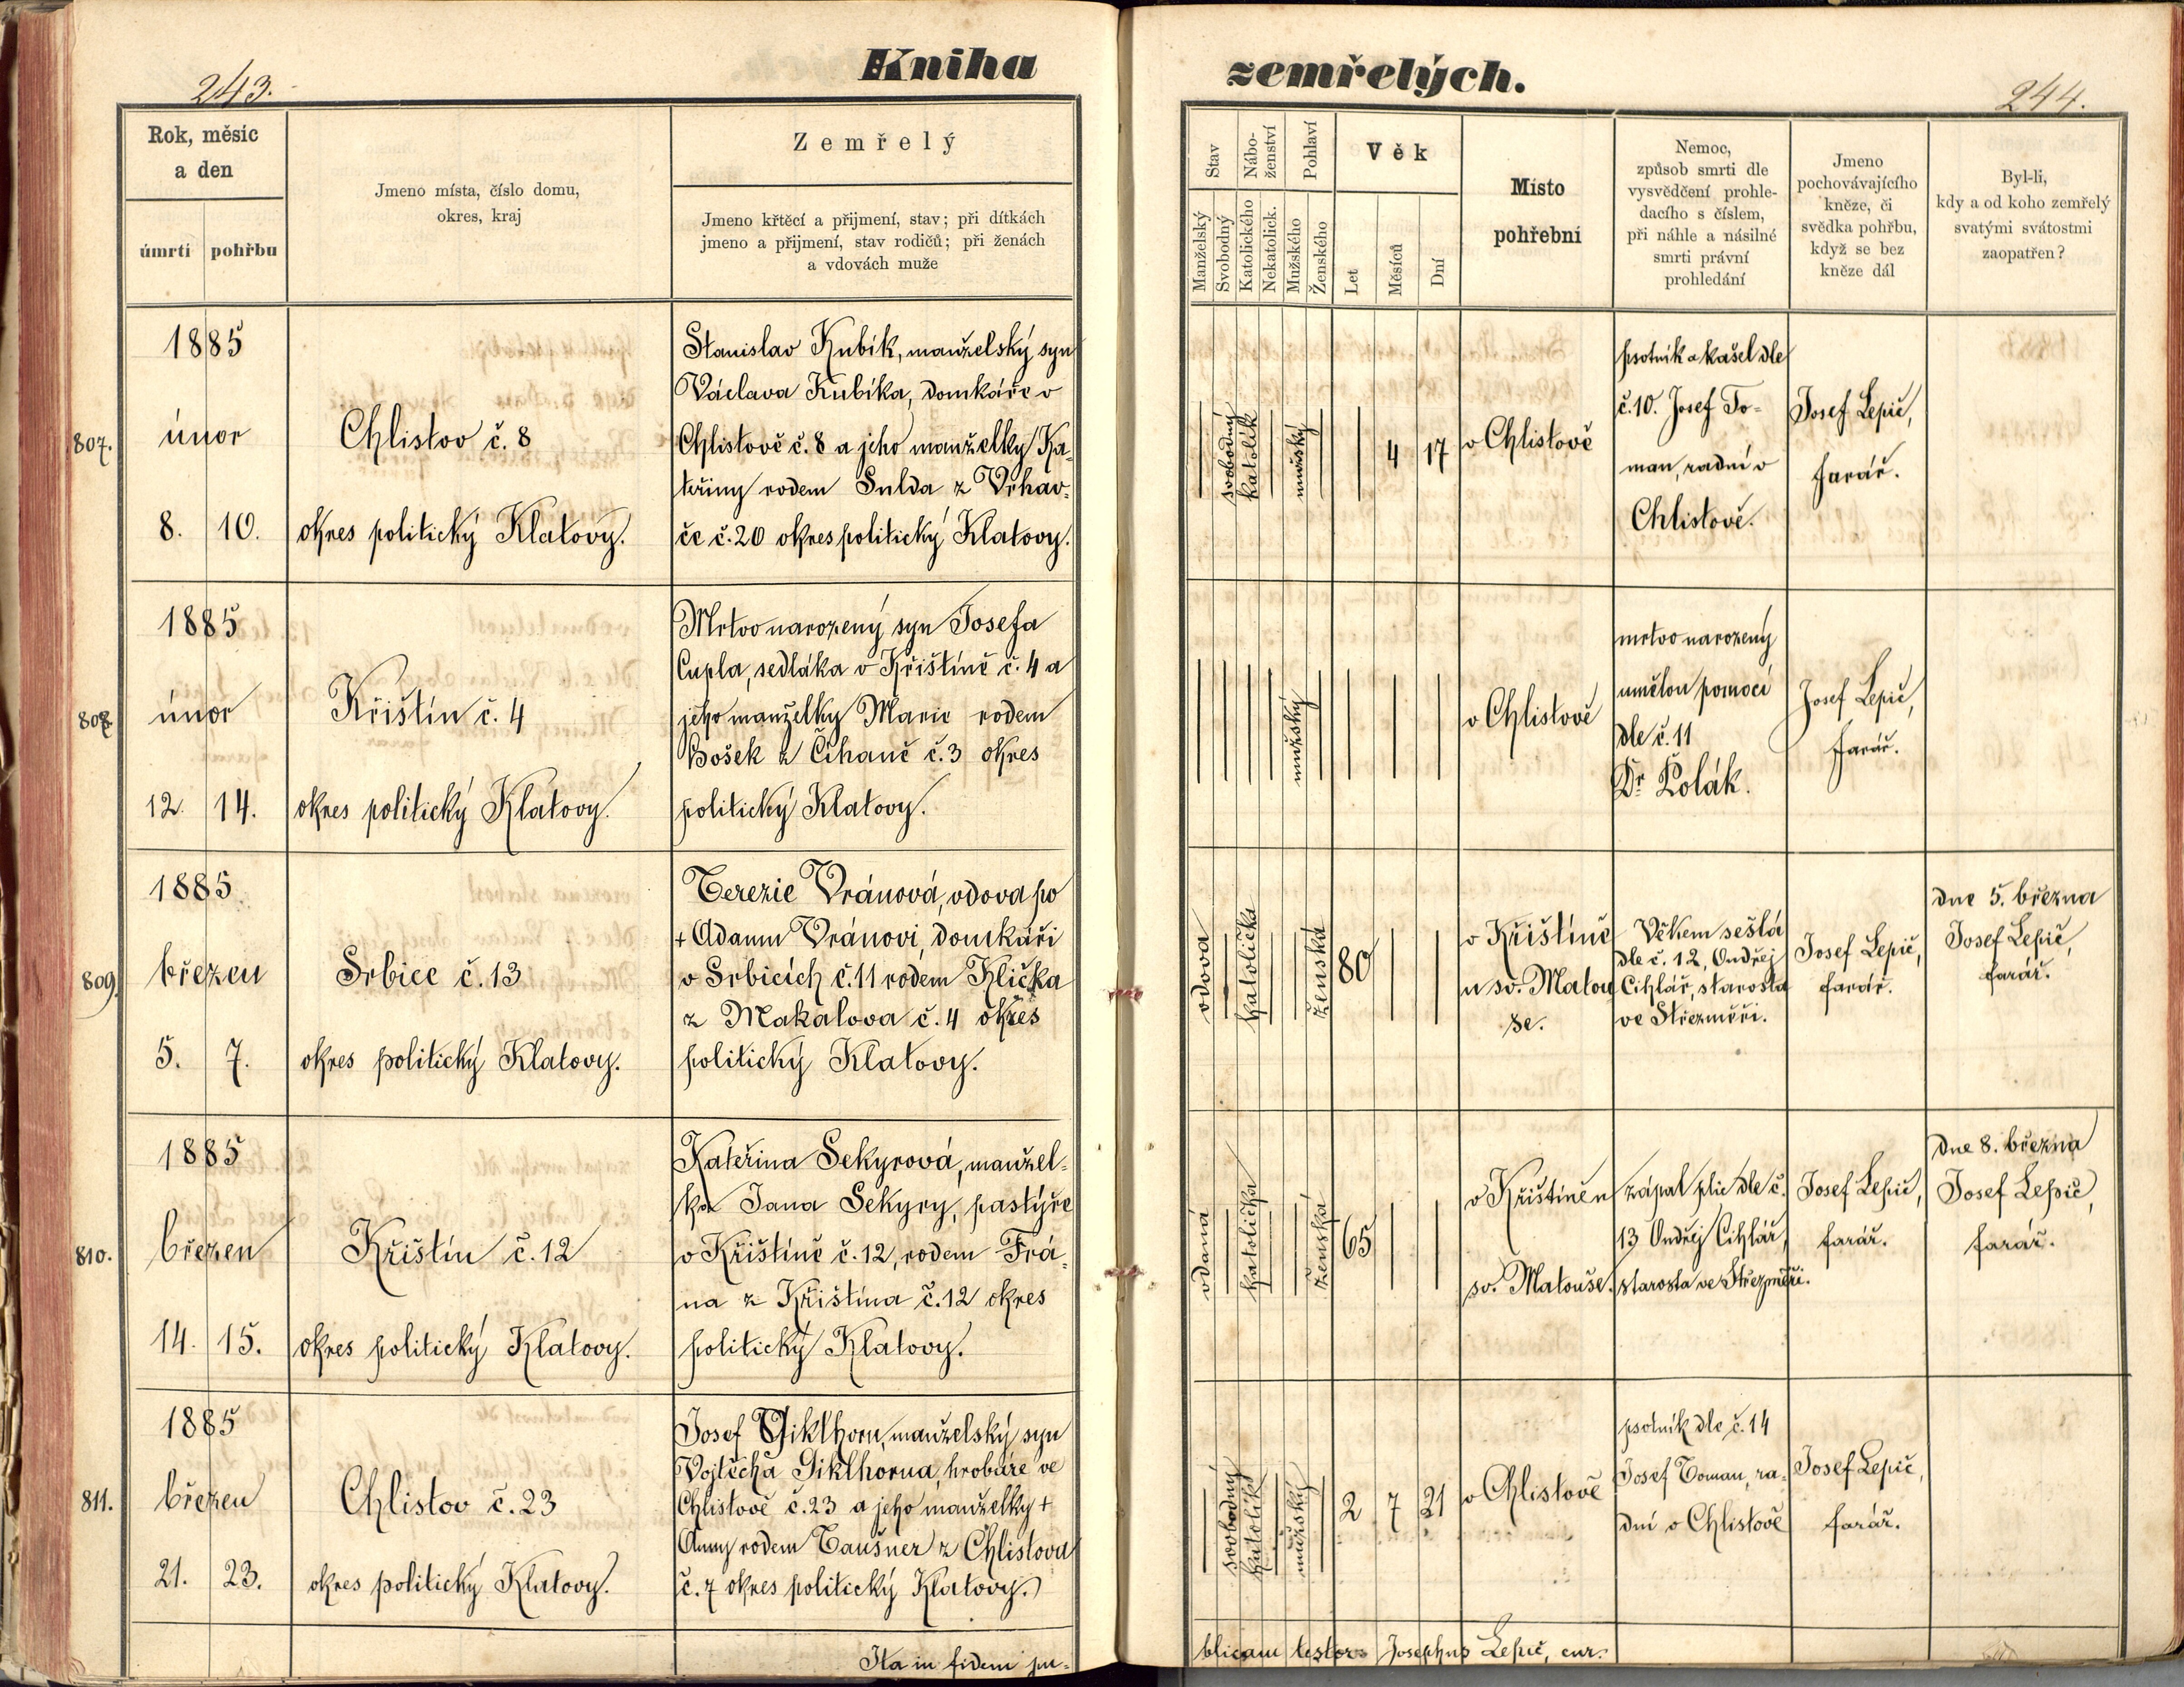 243.
Kniha
Rok, měsíc
a den
úmrtí
pohřbu
Jmeno místa, číslo domu,
okres, kraj
Zemřelý
Jmeno křtěcí a přijmení, stav; při dítkách
jmeno a přijmení, stav rodičů; při ženách
a vdovách muže
807.
1885
únor
8. 10.
Chlistov č. 8
okres politický Klatovy.
Stanislav Kubík, manželský syn
Václava Kubíka, domkáře v
Chlistově č. 8 a jeho manželky Ka-
teřiny rodem Sulda z Vrhav-
če č. 20 okres politický Klatovy.
808
1885
únor
12. 14.
Křištín č. 4
okres politický Klatovy.
Mrtvo narozený syn Josefa
Cupla, sedláka v Křištíně č. 4 a
jeho manželky Marie rodem
Bošek z Číhaně č. 3 okres
politický Klatovy.
809.
1885
březen
5. 7.
Srbice č. 13
okres politický Klatovy.
Terezie Vránová, vdova po
+ Adamu Vránovi, domkáři
v Srbicích č. 11 rodem Klička
z Makalova č. 4 okres
politický Klatovy.
810.
1885
březen
14. 15.
Křištín č. 12
okres politický Klatovy.
Kateřina Sekyrová, manžel-
ka Jana Sekyry, pastýře
v Křištíně č. 12, rodem Frá-
na z Křištína č. 12 okres
politický Klatovy.
811.
1885
březen
21. 23.
Chlistov č. 23
okres politický Klatovy.
Josef Giklhorn, manželský syn
Vojtěcha Giklhorna, hrobaře ve
Chlistově č. 23 a jeho manželky +
Anny rodem Taušner z Chlistova
č. 7 okres politický Klatovy.
Ita in fidem pu-
zemřelých.
244.
Stav
Nábo-
ženství
Pohlaví
Věk
Manželský
Svobodný
Katolického
Nekatolick.
Mužského
Ženského
Let
Měsíců
Dní
Místo
pohřební
Nemoc,
způsob smrti dle
vysvědčení prohle-
dacího s číslem,
při náhle a násilné
smrti právní
prohledání
Jmeno
pochovávajícího
kněze, či
svědka pohřbu,
když se bez
kněze dál
Byl-li,
kdy a od koho zemřelý
svatými svátostmi
zaopatřen?
svobodný
katolík
mužský
4 17
v Chlistově
psotník a kašel dle
č. 10. Josef To-
man, radní v
Chlistově.
Josef Lepič,
farář.
mužský
v Chlistově
mrtvo narozený
umělou pomocí
dle č. 11
Dr. Polák.
Josef Lepič,
farář.
vdova
katolička
ženská
80
v Křištíně
u sv. Matou
še.
Věkem sešlá
dle č. 12, Ondřej
Cihlář, starosta
ve Střezměři.
Josef Lepič,
farář.
dne 5. března
Josef Lepič,
farář.
vdaná
katolička
ženská
65
v Křištíně u
sv. Matouše.
zápal plic dle č.
13 Ondřej Cihlář,
starosta ve Střezměři.
Josef Lepič,
farář.
dne 8. března
Josef Lepič,
farář.
svobodný
katolík
mužský
2 7 21
v Chlistově
psotník dle č. 14
Josef Toman, ra-
dní v Chlistově
Josef Lepič,
farář.
blicam testor Josephus Lepič, cur.